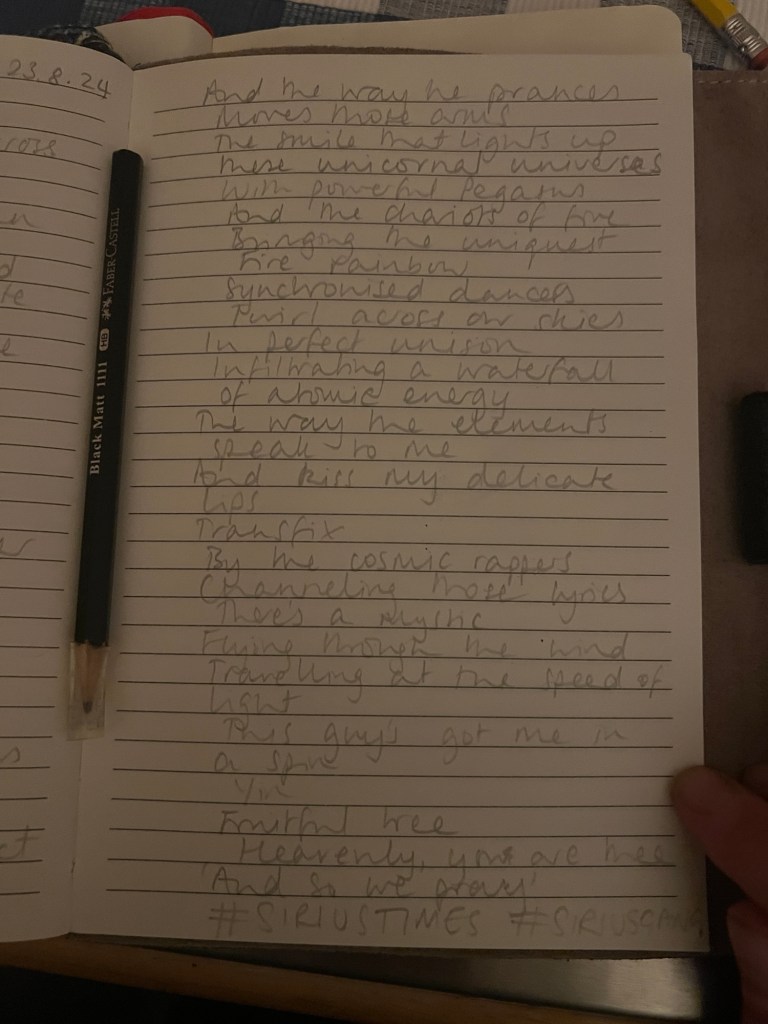 23.8.24
And the way he prances
Moves those arms
The smile that lights up
these unicornal universes
With powerful Pegasus
And the chariots of fire
Bringing the uniquest
Fire rainbow
Synchronised dancers
Twirl across our skies
In perfect unison
Infiltrating a waterfall
of atomic energy
The way the elements
speak to me
And kiss my delicate
Lips
Transfix
By the cosmic rappers
Channeling those lyrics
There's a Mystic
Flying through the wind
Travelling at the speed of
light
This guy's got me in
a spin
Yin
Fruitful tree
Heavenly, are thee
'And so we pray'
#SIRIUSTIMES #SIRIUSGANG
Black Matt 1111 HB FABER-CASTELL